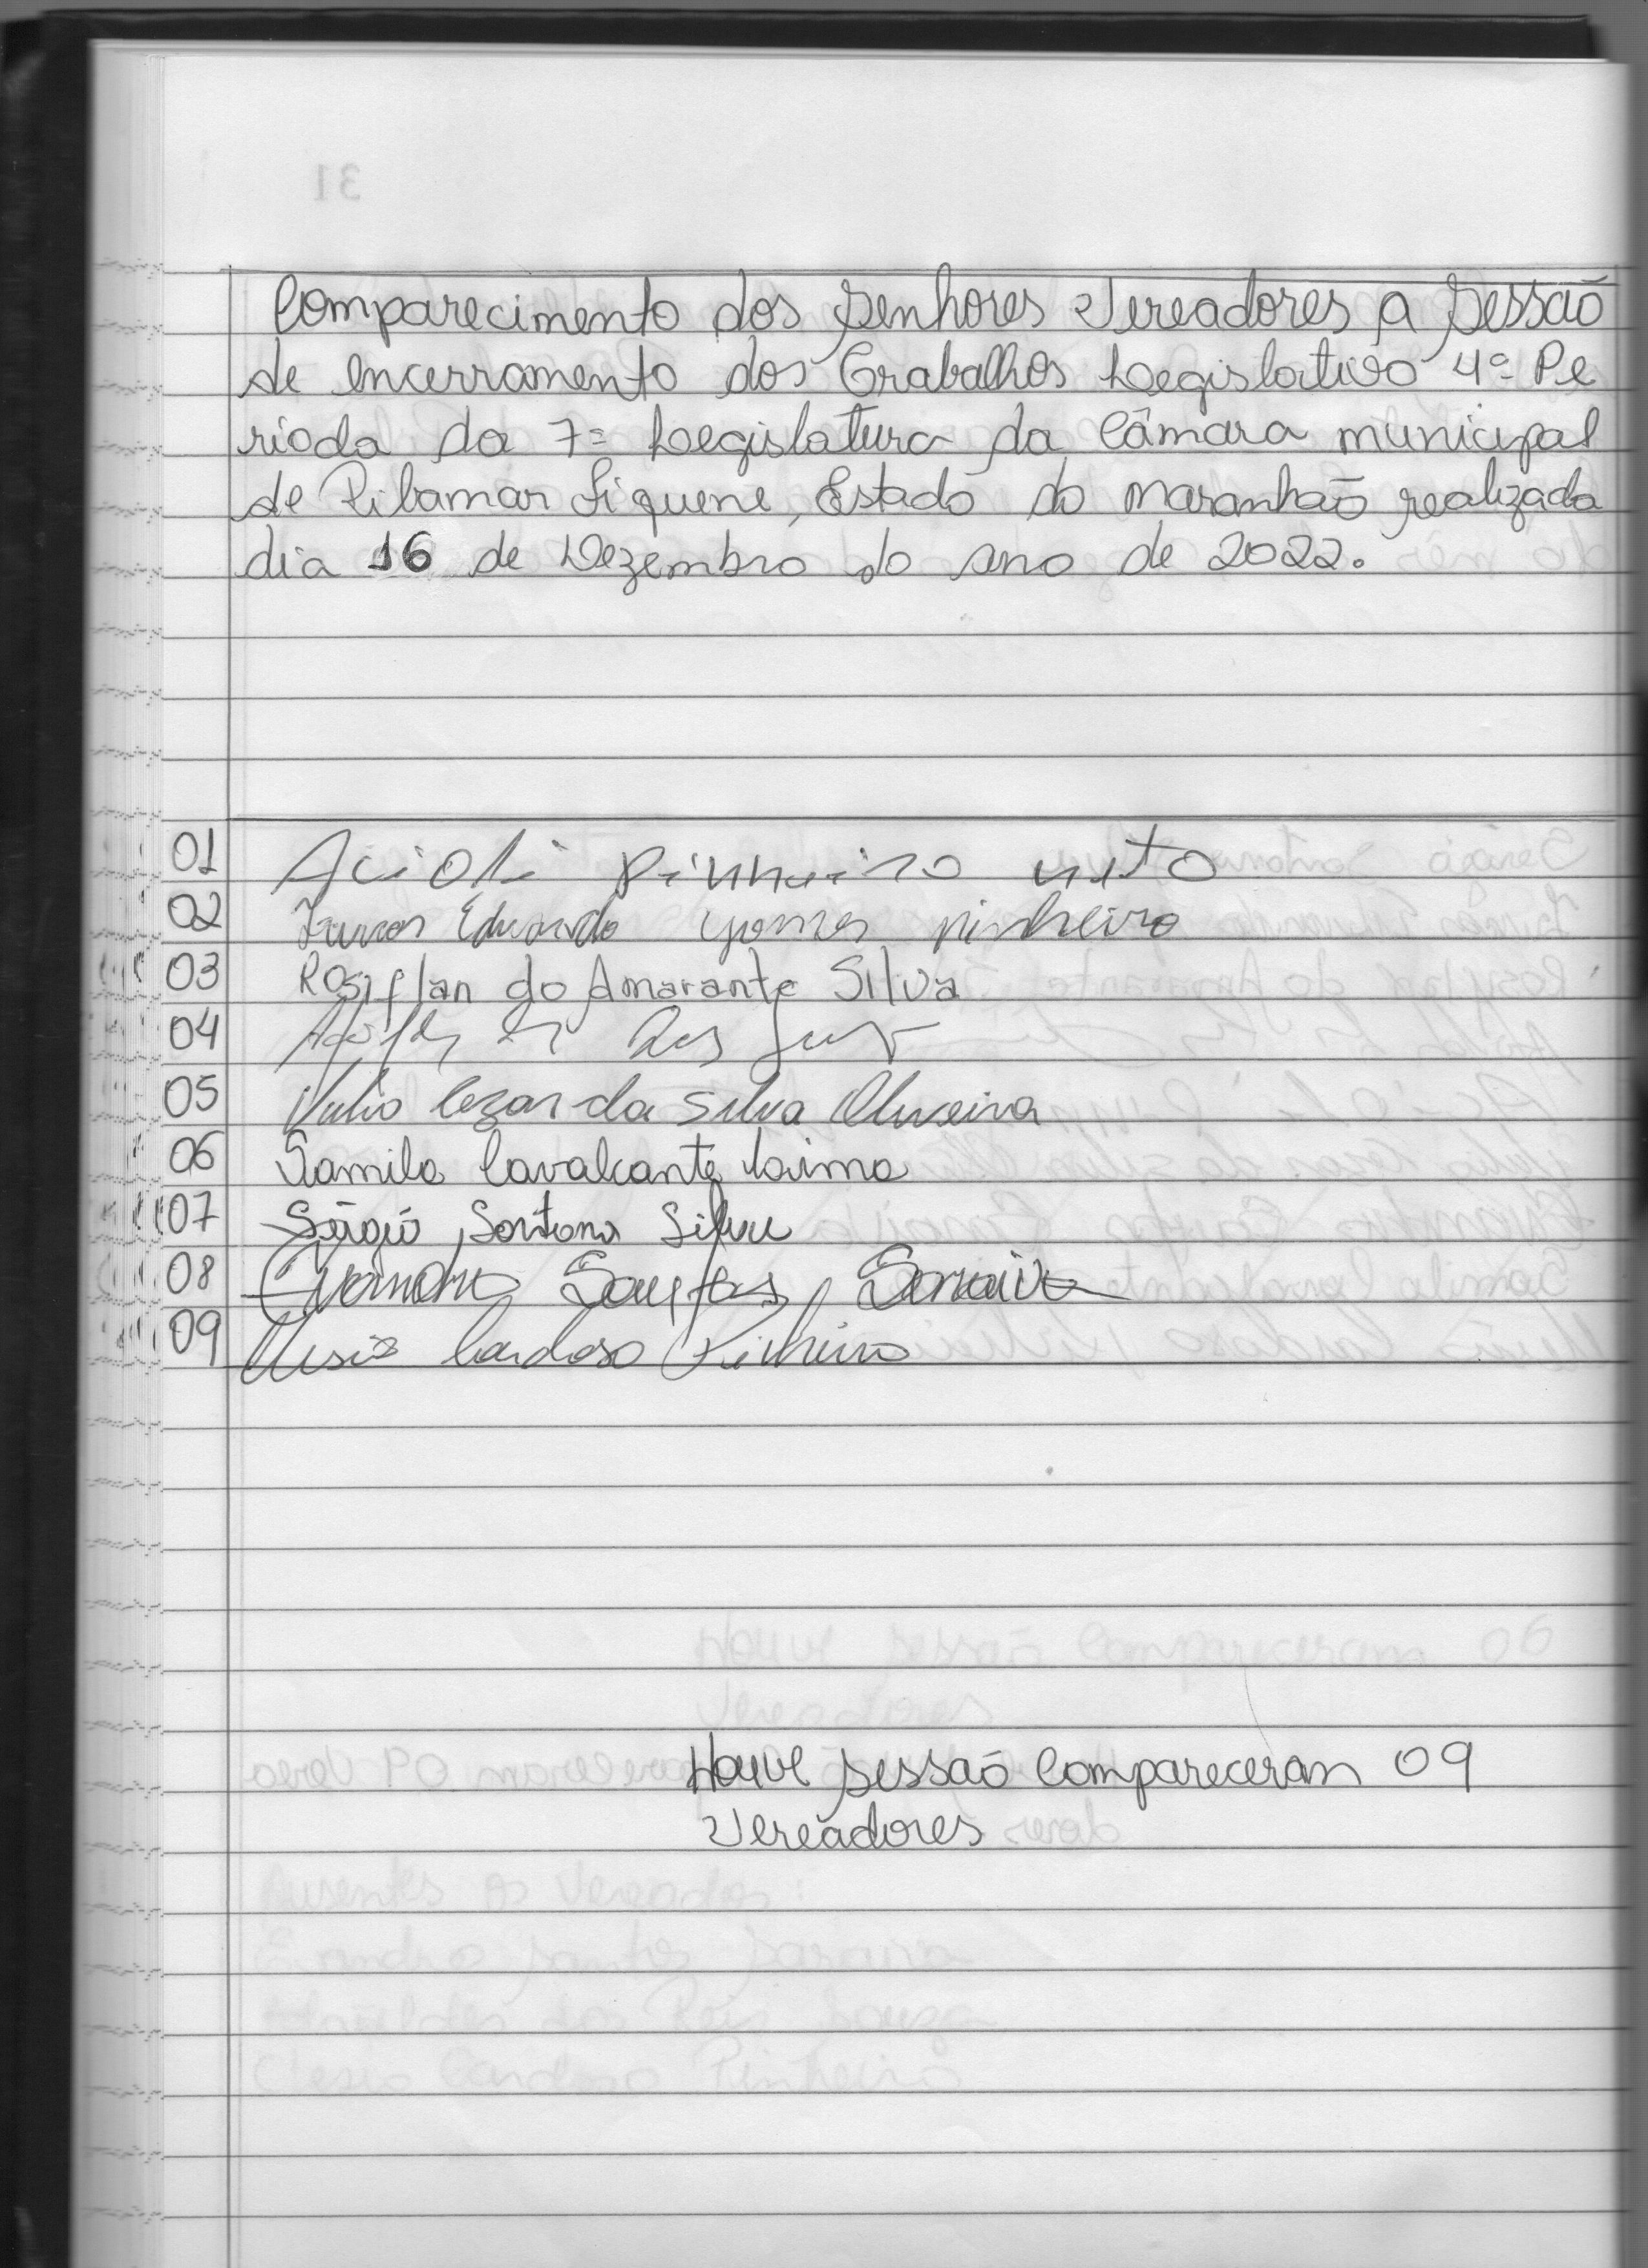 Comparecimento dos Senhores Vereadores a Sessão
de encerramento dos Trabalhos Legislativo 4º Pe
rioda da 7ª Legislatura da Câmara municipal
de Ribamar Fiquene, Estado do Maranhão realizada
dia 16 de Dezembro do ano de 2022.
01 Acioli Pinheiro neto
02 Eduardo gomes pinheiro
03 Rosiflan do Amarante Silva
04
05 Julio Cezar da Silva Oliveira
06 Samila Cavalcante Lima
07 Sérgio Santana Silva
08 Evandro Santos Saraiva
09 Clesio Cardoso Pinheiro
Houve sessão Compareceram 09
Vereadores